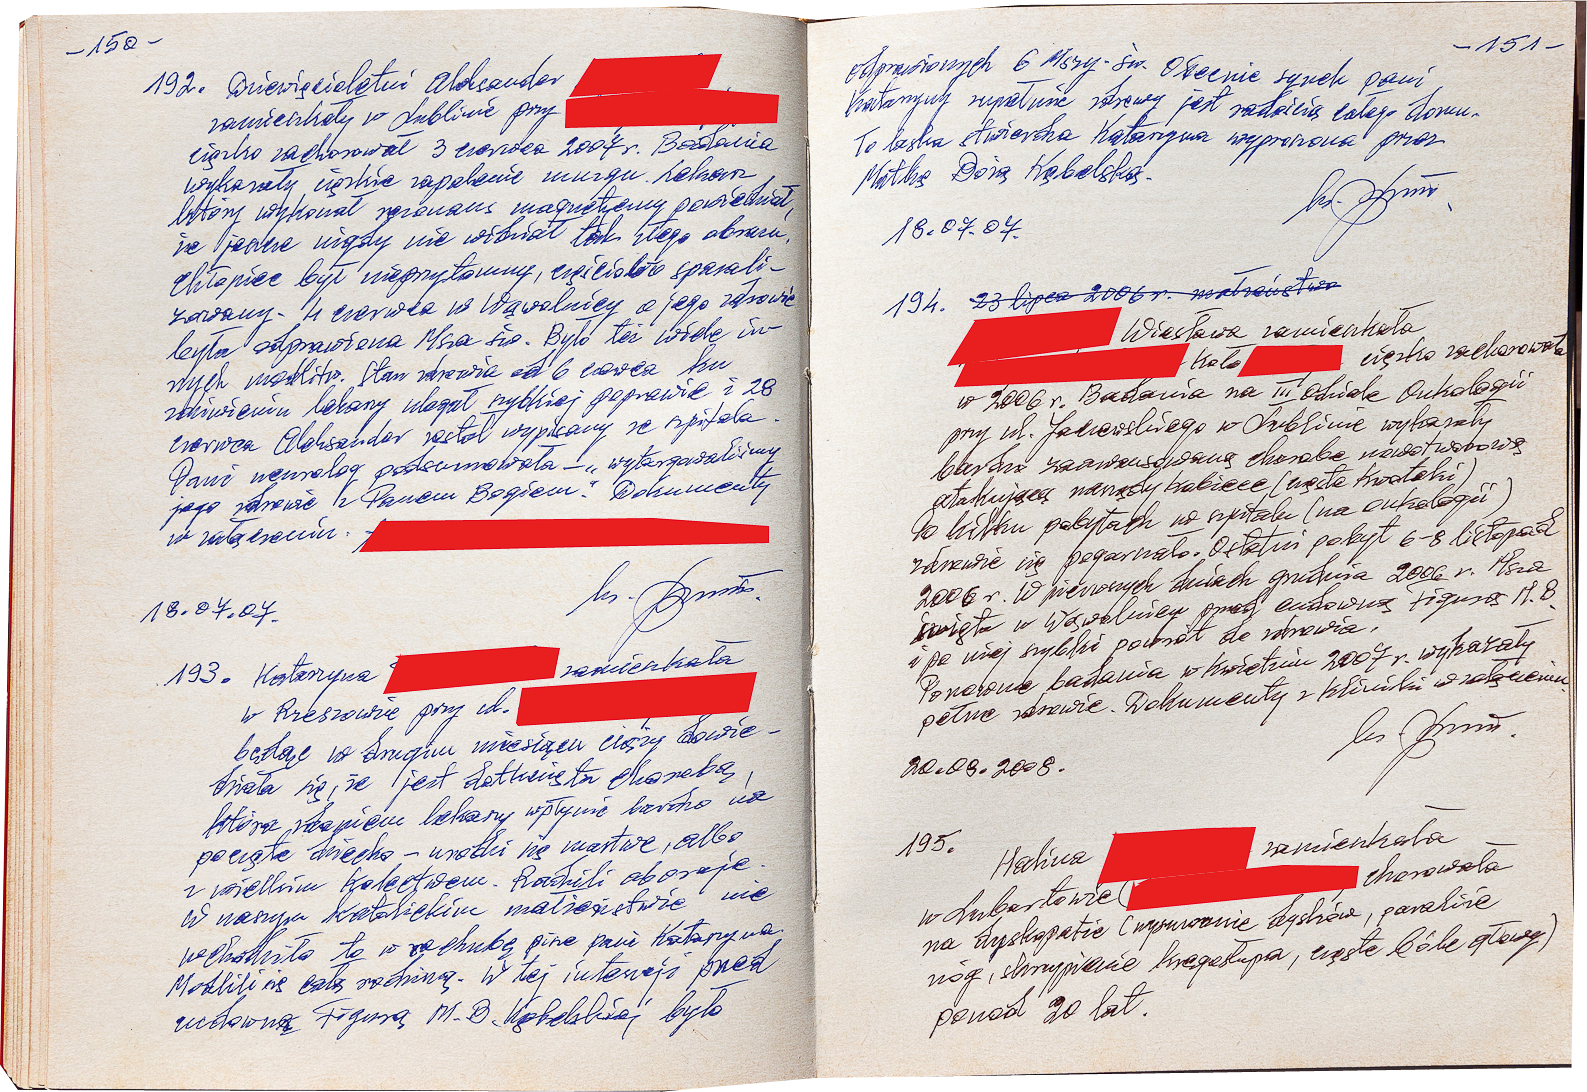 -150-
192. Dziewięcioletni Aleksander
zamieszkały w Lublinie przy
ciężko zachorował 3 czerwca 2007 r. Badania
wykazały ciężkie zapalenie mózgu. Lekarz
który wykonał rezonans magnetyczny powiedział,
że jeszcze nigdy nie widział tak złego obrazu.
Chłopiec był nieprzytomny, częściowo sparali-
żowany. 4 czerwca w Wąwolnicy o jego zdrowie
była odprawiona Msza św. Było też wiele in-
nych modlitw. Stan zdrowia od 6 czerwca ku
zdziwieniu lekarzy uległ szybkiej poprawie i 28
czerwca Aleksander został wypisany ze szpitala.
Pani neurolog podsumowała – „wytargowaliśmy
jego zdrowie z Panem Bogiem." Dokumenty
w załączeniu.
ks.
18.07.07.
193. Katarzyna zamieszkała
w Rzeszowie przy ul.
będąc w drugim miesiącu ciąży dowie-
działa się, że jest dotknięta chorobą,
która zdaniem lekarzy wpłynie bardzo na
poczęte dziecko – urodzi się martwe, albo
z wielkim kalectwem. Radzili aborcję.
W naszym katolickim małżeństwie nie
wchodziło to w rachubę pisze pani Katarzyna.
Modlili się całą rodziną. W tej intencji przed
cudowną Figurą M.B. Kębelskiej było
-151-
odprawionych 6 Mszy św. Obecnie synek pani
Katarzyny zupełnie zdrowy jest radością całego domu.
To łaska stwierdza Katarzyna wyproszona przez
Matkę Bożą Kębelską.
ks.
18.07.07.
194. 23 lipca 2006 r. małżeństwo
Wiesława zamieszkała
koło ciężko zachorowała
w 2006 r. Badania na III odziale Onkologii
przy ul. Jaczewskiego w Lublinie wykazały
bardzo zaawansowaną chorobę nowotworową
atakującą narządy kobiece (częste krwotoki)
Po kilku pobytach w szpitalu (na onkologii)
zdrowie się pogarszało. Ostatni pobyt 6-8 listopad
2006 r. W pierwszych dniach grudnia 2006 r. Msza
święta w Wąwolnicy przed cudowną Figurą M.B.
i po niej szybki powrót do zdrowia.
Ponowne badania w kwietniu 2007 r. wykazały
pełne zdrowie. Dokumenty z kliniki w załączeniu.
ks.
20.08.2008.
195. Halina zamieszkała
w Lubartowie ( chorowała
na dyskopatię (wysuwanie dysków, paraliże
nóg, skrzypienie kręgosłupa, częste bóle głowy)
ponad 20 lat.